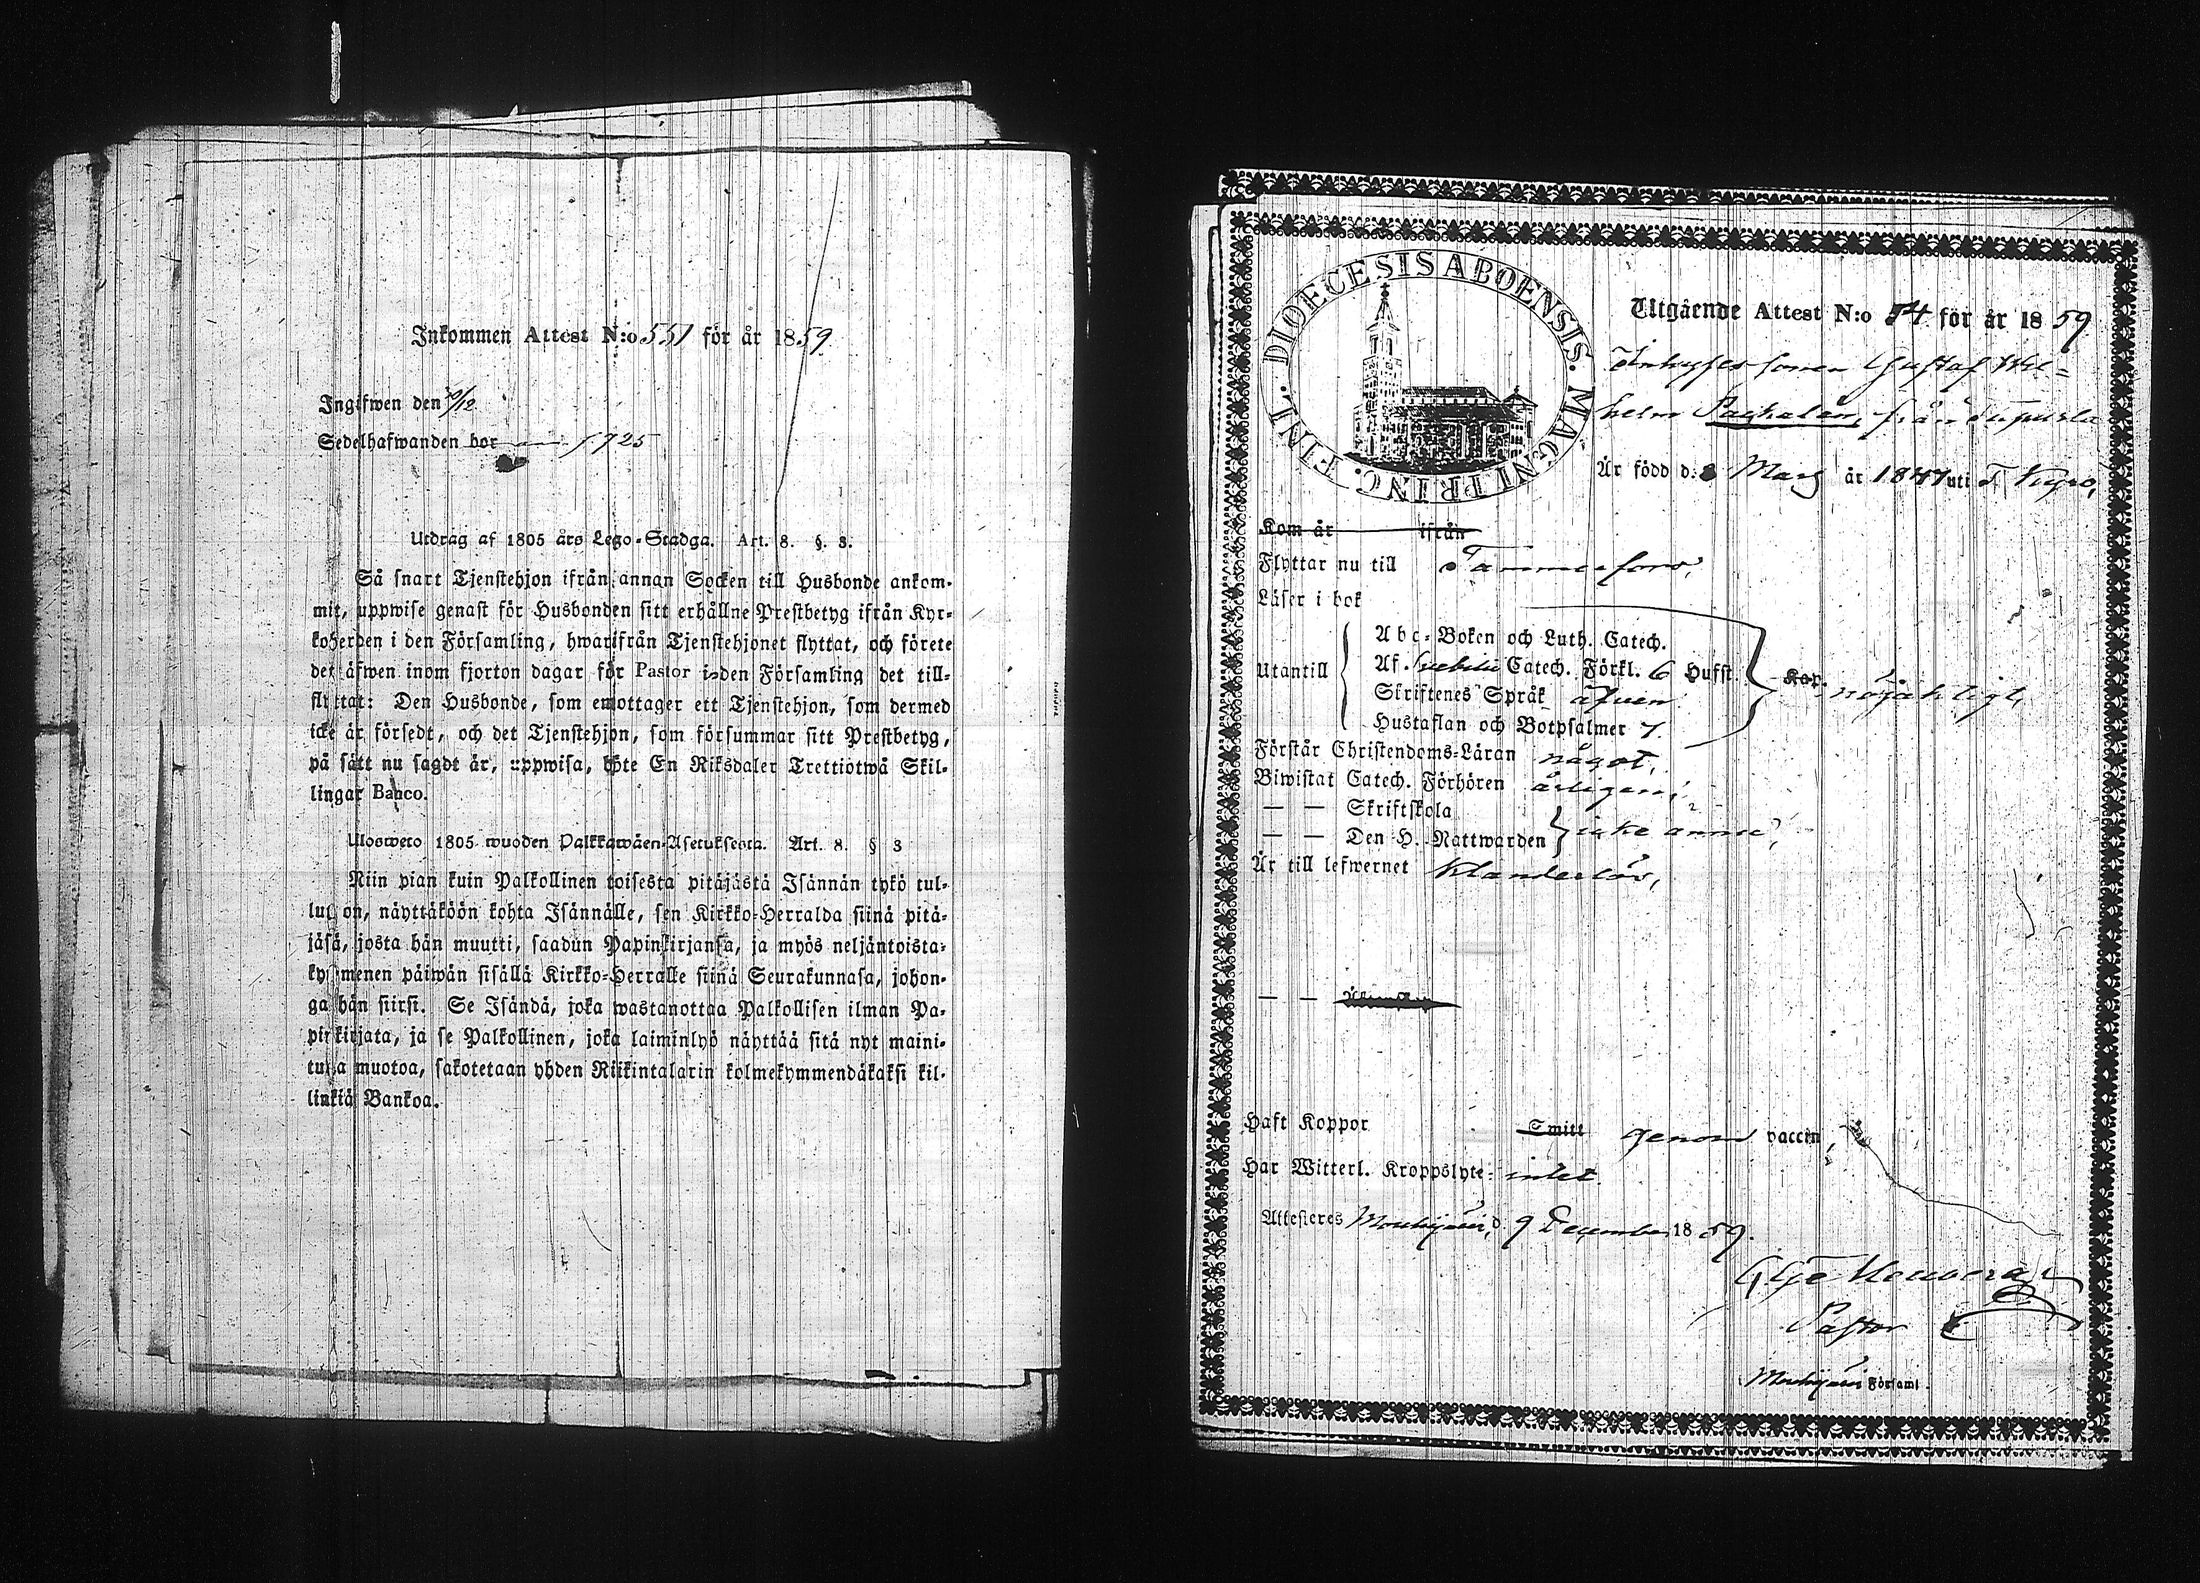 Inkommen Attest N:o 551 för år 1859.
Ingifwen den 30/12
Sedelhafwanden bor 1725
Utdrag af 1805 års Lego-Stadga. Art. 8. §. 3.
Så snart Tjenstehjon ifrån annan Socken till Husbonde ankom-
mit, uppwise genast för Husbonden sitt erhållne Prestbetyg ifrån Kyr-
koherden i den Församling, hwarifrån Tjenstehjonet flyttat, och förete
det äfwen inom fjorton dagar för Pastor i den Församling det till-
flyttat: Den Husbonde, som emottager ett Tjenstehjon, som dermed
icke är försedt, och det Tjenstehjon, som försummar sitt Prestbetyg,
på sätt nu sagdt är, uppwisa, böte En Riksdaler Trettiotwå Skil-
lingar Banco.
Ulosweto 1805 wuoden Palkkawäen-Asetuksesta. Art. 8. § 3
Niin pian kuin Palkollinen toisesta pitäjästä Isännän tykö tul-
lut on, näyttäköön kohta Isännälle, sen Kirkko-Herralda siinä pitä-
jäsä, josta hän muutti, saadun Papinkirjansa, ja myös neljäntoista-
kymmenen päiwän sisällä Kirkko-Herralle siinä Seurakunnasa, johon-
ga hän siirsi. Se Isändä, joka wastanottaa Palkollisen ilman Pa-
pinkirjata, ja se Palkollinen, joka laiminlyö näyttää sitä nyt maini-
tulla muotoa, sakotetaan yhden Riikintalarin kolmekymmendäkaksi kil-
linkiä Bankoa.
DIOECESIS ABOENSIS. MAGNI PRINC. FINL.
Utgående Attest N:o 74 för år 1859
Inhyses sonen Gustaf Wil=
helm från
Är född d. 8 Mars år 1847 uti T. Kyro,
Kom år ifrån
Flyttar nu till Tammerfors,
Läser i bok
Utantill
Abc-Boken och Luth. Catech.
Af Svebilii Catech. Förkl. 6 Hufst.
Skriftenes Språk äfven
Hustaflan och Botpsalmer 7.
Kap. nöjaktigt,
Förstår Christendoms-Läran något,
Biwistat Catech. Förhören årligen;
— — Skriftskola
— — Den H. Nattwarden icke ännu,
Är till lefwernet klanderlös,
Haft Koppor Smitt genom vaccin,
Har Witterl. Kroppslyte: intet.
Attesteres Mouhijärvi, d. 9 December 1859.
Pastor
Mouhijärvi Församl.